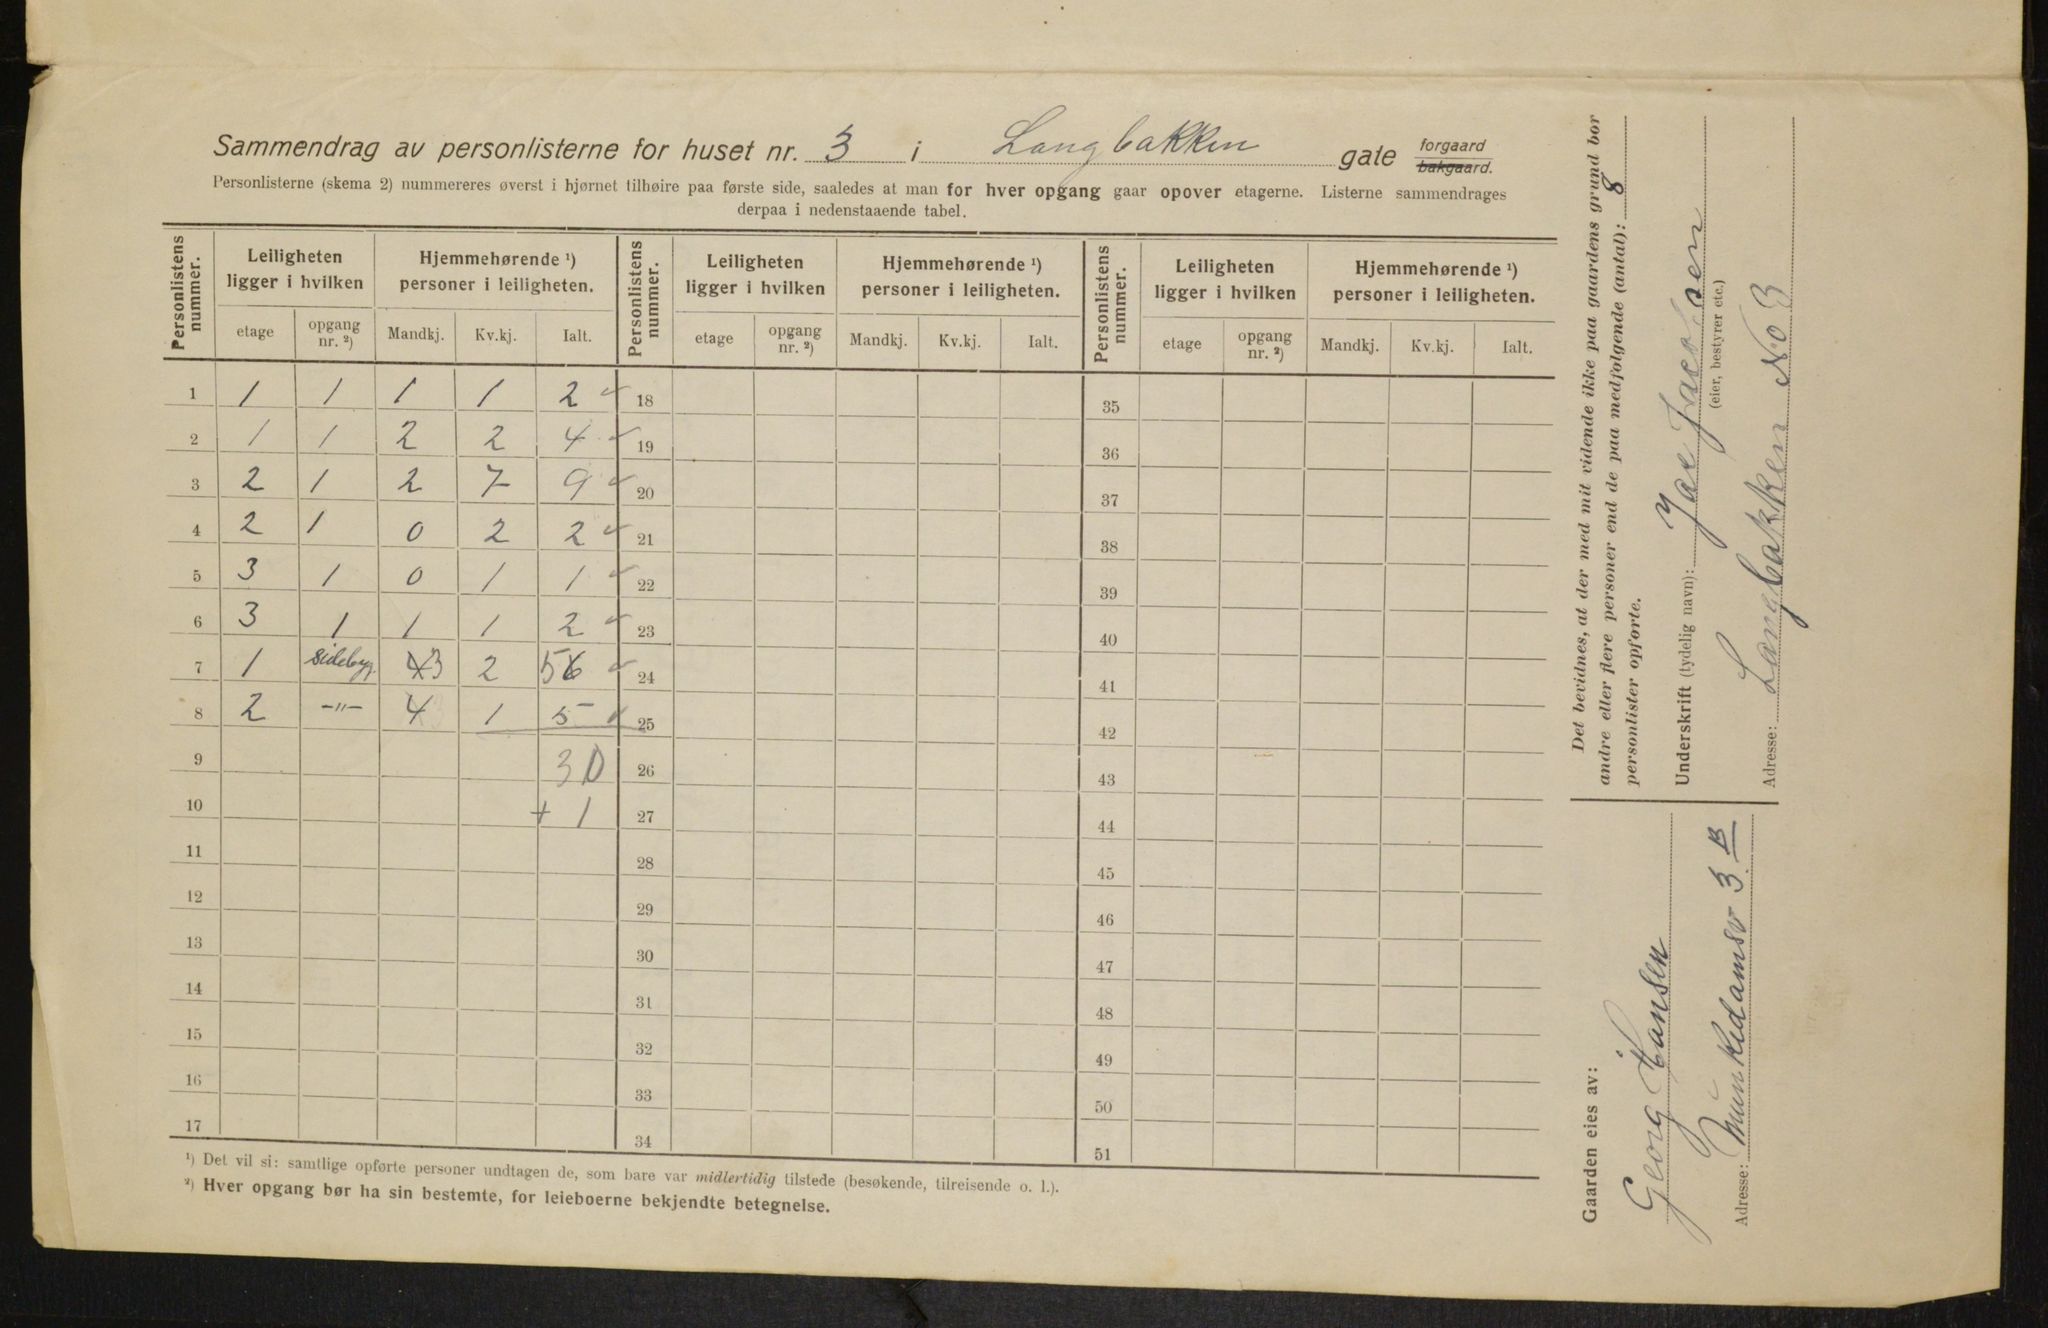 Sammendrag av personlisterne for huset nr. 3 i Langbakken gate forgaard bakgaard.
Personlisterne (skema 2) nummereres øverst i hjørnet tilhøire paa første side, saaledes at man for hver opgang gaar opover etagerne. Listerne sammendrages
derpaa i nedenstaaende tabel.
Personlistens nummer. Leiligheten ligger i hvilken Hjemmehørende ¹) personer i leiligheten. Personlistens nummer. Leiligheten ligger i hvilken Hjemmehørende ¹) personer i leiligheten. Personlistens nummer. Leiligheten ligger i hvilken Hjemmehørende ¹) personer i leiligheten.
etage opgang nr. ²) Mandkj. Kv.kj. Ialt. etage opgang nr. ²) Mandkj. Kv.kj. Ialt. etage opgang nr. ²) Mandkj. Kv.kj. Ialt.
1 1 1 1 1 2 18 35
2 1 1 2 2 4 19 36
3 2 1 2 7 9 20 37
4 2 1 0 2 2 21 38
5 3 1 0 1 1 22 39
6 3 1 1 1 2 23 40
7 1 sidebyg. 43 2 56 24 41
8 2 -"- 4 1 5 25 42
9 30 26 43
10 + 1 27 44
11 28 45
12 29 46
13 30 47
14 31 48
15 32 49
16 33 50
17 34 51
¹) Det vil si: samtlige opførte personer undtagen de, som bare var midlertidig tilstede (besøkende, tilreisende o. l.).
²) Hver opgang bør ha sin bestemte, for leieboerne bekjendte betegnelse.
Det bevidnes, at der med mit vidende ikke paa gaardens grund bor
andre eller flere personer end de paa medfølgende (antal): 8
personlister opførte.
Underskrift (tydelig navn): Jac Jacobsen
(eier, bestyrer etc.)
Adresse: Langbakken No 3
Gaarden eies av:
Georg Hansen
Adresse: Munkedamsv 3 B